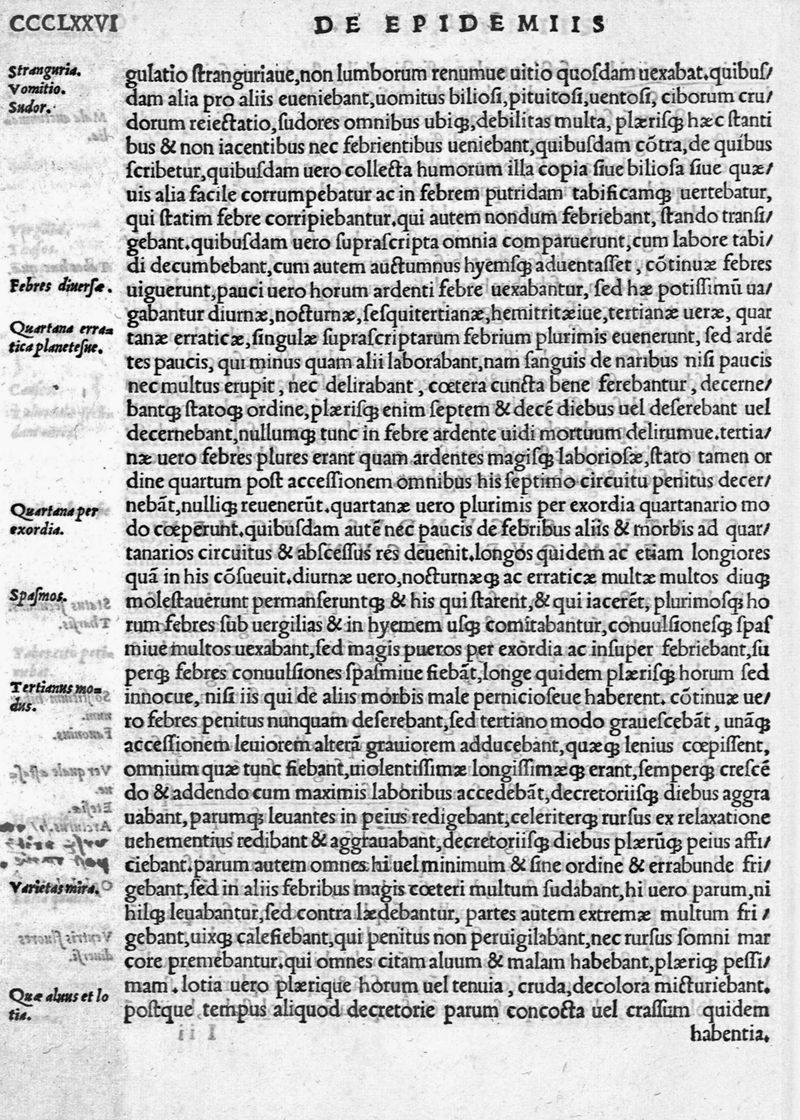 CCCLXXVI DE EPIDEMIIS
Stranguria.
Vomitio.
Sudor.
Febres diuersæ.
Quartana erra-
tica planetesue.
Quartana per
exordia.
Spasmos.
Tertianus mo-
dus.
Varietas mira.
Quæ aluus et lo
tia.
gulatio ſtranguriaue,non lumborum renumue uitio quoſdam uexabat.quibuſ/
dam alia pro aliis eueniebant,uomitus bilioſi,pituitoſi,uentoſi, ciborum cru/
dorum reiectatio,ſudores omnibus ubiqȝ,debilitas multa, plæriſqȝ hæc ſtanti
bus & non iacentibus nec febrientibus ueniebant,quibuſdam cõtra,de quibus
ſcribetur,quibuſdam uero collecta humorum illa copia ſiue bilioſa ſiue quæ/
uis alia facile corrumpebatur ac in febrem putridam tabificamqȝ uertebatur,
qui ſtatim febre corripiebantur,qui autem nondum febriebant, ſtando tranſi/
gebant.quibuſdam uero ſupraſcripta omnia comparuerunt,cum labore tabi/
di decumbebant,cum autem auctumnus hyemſqȝ aduentaſſet, cõtinuæ febres
uiguerunt,pauci uero horum ardenti febre uexabantur, ſed hæ potiſſimũ ua/
gabantur diurnæ,nocturnæ,ſeſquitertianæ,hemitritæiue,tertianæ ueræ, quar
tanæ erraticæ,ſingulæ ſupraſcriptarum febrium plurimis euenerunt, ſed ardẽ
tes paucis, qui minus quam alii laborabant,nam ſanguis de naribus niſi paucis
nec multus erupit, nec delirabant, cœtera cuncta bene ferebantur, decerne/
bantqȝ ſtatoqȝ ordine,plæriſqȝ enim ſeptem & decẽ diebus uel deſerebant uel
decernebant,nullumqȝ tunc in febre ardente uidi mortuum delirumue.tertia/
næ uero febres plures erant quam ardentes magiſqȝ laborioſæ,ſtato tamen or
dine quartum poſt acceſſionem omnibus his ſeptimo circuitu penitus decer/
nebãt,nulliqȝ reuenerũt.quartanæ uero plurimis per exordia quartanario mo
do cœperunt.quibuſdam autẽ nec paucis de febribus aliis & morbis ad quar/
tanarios circuitus & abſceſſus res deuenit.longos quidem ac etiam longiores
quã in his cõſueuit.diurnæ uero,nocturnæqȝ ac erraticæ multæ multos diuqȝ
moleſtauerunt permanſeruntqȝ & his qui ſtarent,& qui iacerẽt, plurimoſqȝ ho
rum febres ſub uergilias & in hyemem uſqȝ comitabantur,conuulſioneſqȝ ſpaſ
miue multos uexabant,ſed magis pueros per exordia ac inſuper febriebant,ſu
perqȝ febres conuulſiones ſpaſmiue fiebãt,longe quidem plæriſqȝ horum ſed
innocue, niſi iis qui de aliis morbis male pernicioſeue haberent. cõtinuæ ue/
ro febres penitus nunquam deſerebant,ſed tertiano modo graueſcebãt, unãqȝ
acceſſionem leuiorem alterã grauiorem adducebant,quæqȝ lenius cœpiſſent,
omnium quæ tunc fiebant,uiolentiſſimæ longiſſimæqȝ erant,ſemperqȝ creſcẽ
do & addendo cum maximis laboribus accedebãt,decretoriiſqȝ diebus aggra
uabant,parumqȝ leuantes in peius redigebant,celeriterqȝ rurſus ex relaxatione
uehementius redibant & aggrauabant,decretoriiſqȝ diebus plærũqȝ peius affi/
ciebant.parum autem omnes hi uel minimum & ſine ordine & errabunde fri/
gebant,ſed in aliis febribus magis cœteri multum ſudabant,hi uero parum,ni
hilqȝ leuabantur,ſed contra lædebantur, partes autem extremæ multum fri/
gebant,uixqȝ calefiebant,qui penitus non peruigilabant,nec rurſus ſomni mar
core premebantur.qui omnes citam aluum & malam habebant,plæriqȝ peſſi/
mam. lotia uero plærique horum uel tenuia, cruda,decolora micturiebant.
poſtque tempus aliquod decretorie parum concocta uel craſſum quidem
habentia.